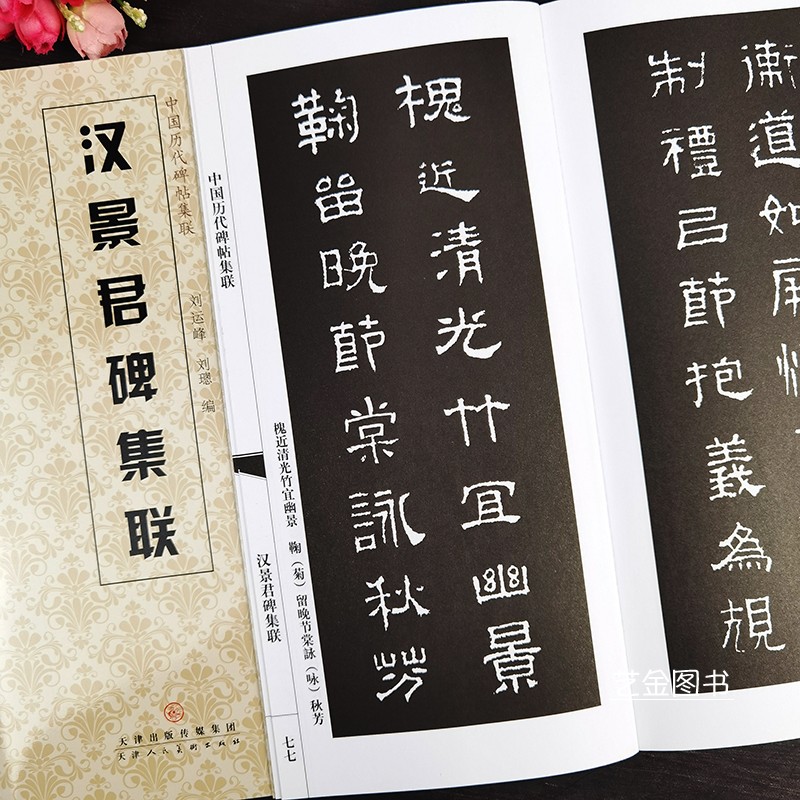 中国历代碑帖集联
汉景君碑集联
刘运峰 刘璁 编
天津出版传媒集团
天津人民美术出版社
中国历代碑帖集联
槐近清光竹宜幽景 鞠(菊)留晚节棠詠(咏)秋芳
汉景君碑集联
七七
槐近清光竹宜幽景
鞠留晚節棠詠秋芳
衛道如
制禮已節抱義為規
艺金图书